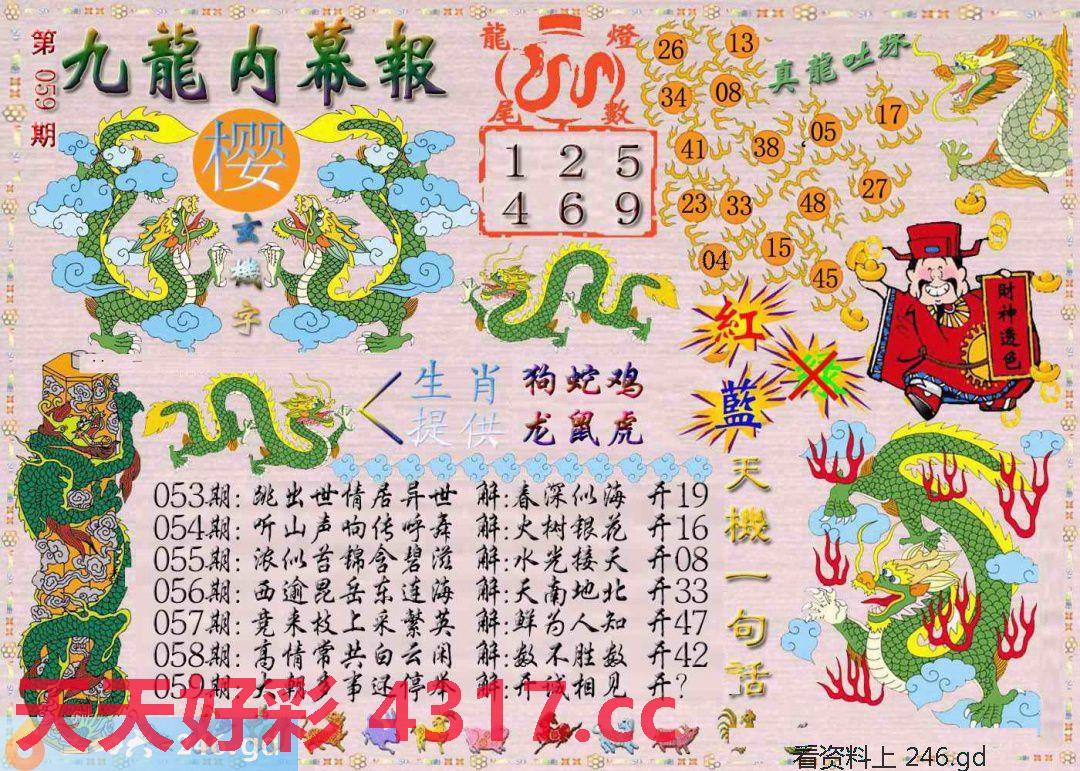 第059期
九龍内幕報
樱
玄機字
龍燈
尾數
1 2 5
4 6 9
真龍吐珠
26 13
34 08
41 38 05 17
23 33 48 27
04 15 45
財神透色
紅
藍
生肖 狗蛇鸡
提供 龙鼠虎
天機一句话
053期: 跳出世情居异世 解:春深似海 开19
054期: 听山声响传呼舞 解:火树银花 开16
055期: 浓似苔锦含碧滋 解:水光接天 开08
056期: 西逾昆岳东连海 解:天南地北 开33
057期: 竞来枝上采繁英 解:鲜为人知 开47
058期: 高情常共白云闲 解:数不胜数 开42
059期: 大朝多事还停 解:开诚相见 开?
天天好彩 4317.cc
246.gd
看资料上 246.gd